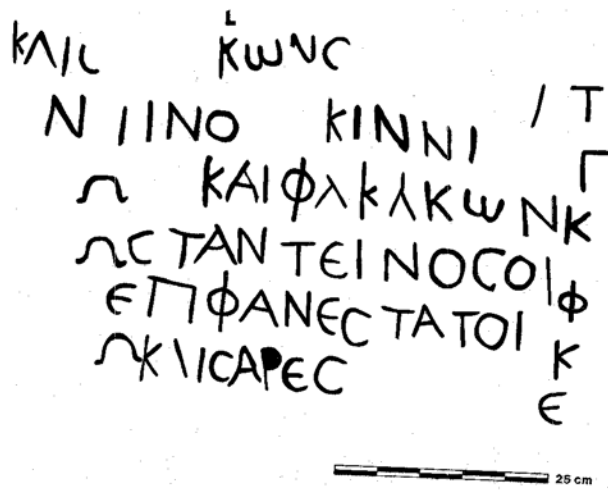 ΚΛΙϹ ΚωΝϹ
Ν ΙΙΝΟ ΚΙΝΝΙ / Τ
Ω ΚΑΙΦλΚλΚωΝΚ Γ
ΩϹΤΑΝΤΕΙΝΟϹΟΙ
ϵΠΦΑΝϵϹΤΑΤΟΙ Φ
ΩΚ\ΙϹΑΡϵϹ Κ
ϵ
25 cm